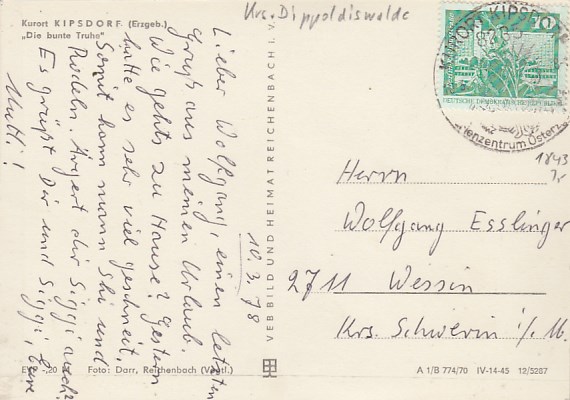 Krs. Dippoldiswalde
Kurort KIPSDORF (Erzgeb.)
„Die bunte Truhe"
10.3.78
Lieber Wolfgang, einen letzten
Gruß aus meinen Urlaub.
Wie gehts zu Hause? Gestern
hatte es sehr viel geschneit,
Somit kann mann Ski und
Rodeln. Ärgert dir Siggi auch?
Es grüßt Dir und Siggi, Eure
Mutti!
VEB BILD UND HEIMAT REICHENBACH I. V.
10
DEUTSCHE DEMOKRATISCHE REPUBLIK
KURORT KIPSDORF
Herrn
Wolfgang Esslinger
2711 Wessin
Krs. Schwerin i/M.
1843
Foto: Darr, Reichenbach (Vogtl.)
A 1/B 774/70 IV-14-45 12/5287